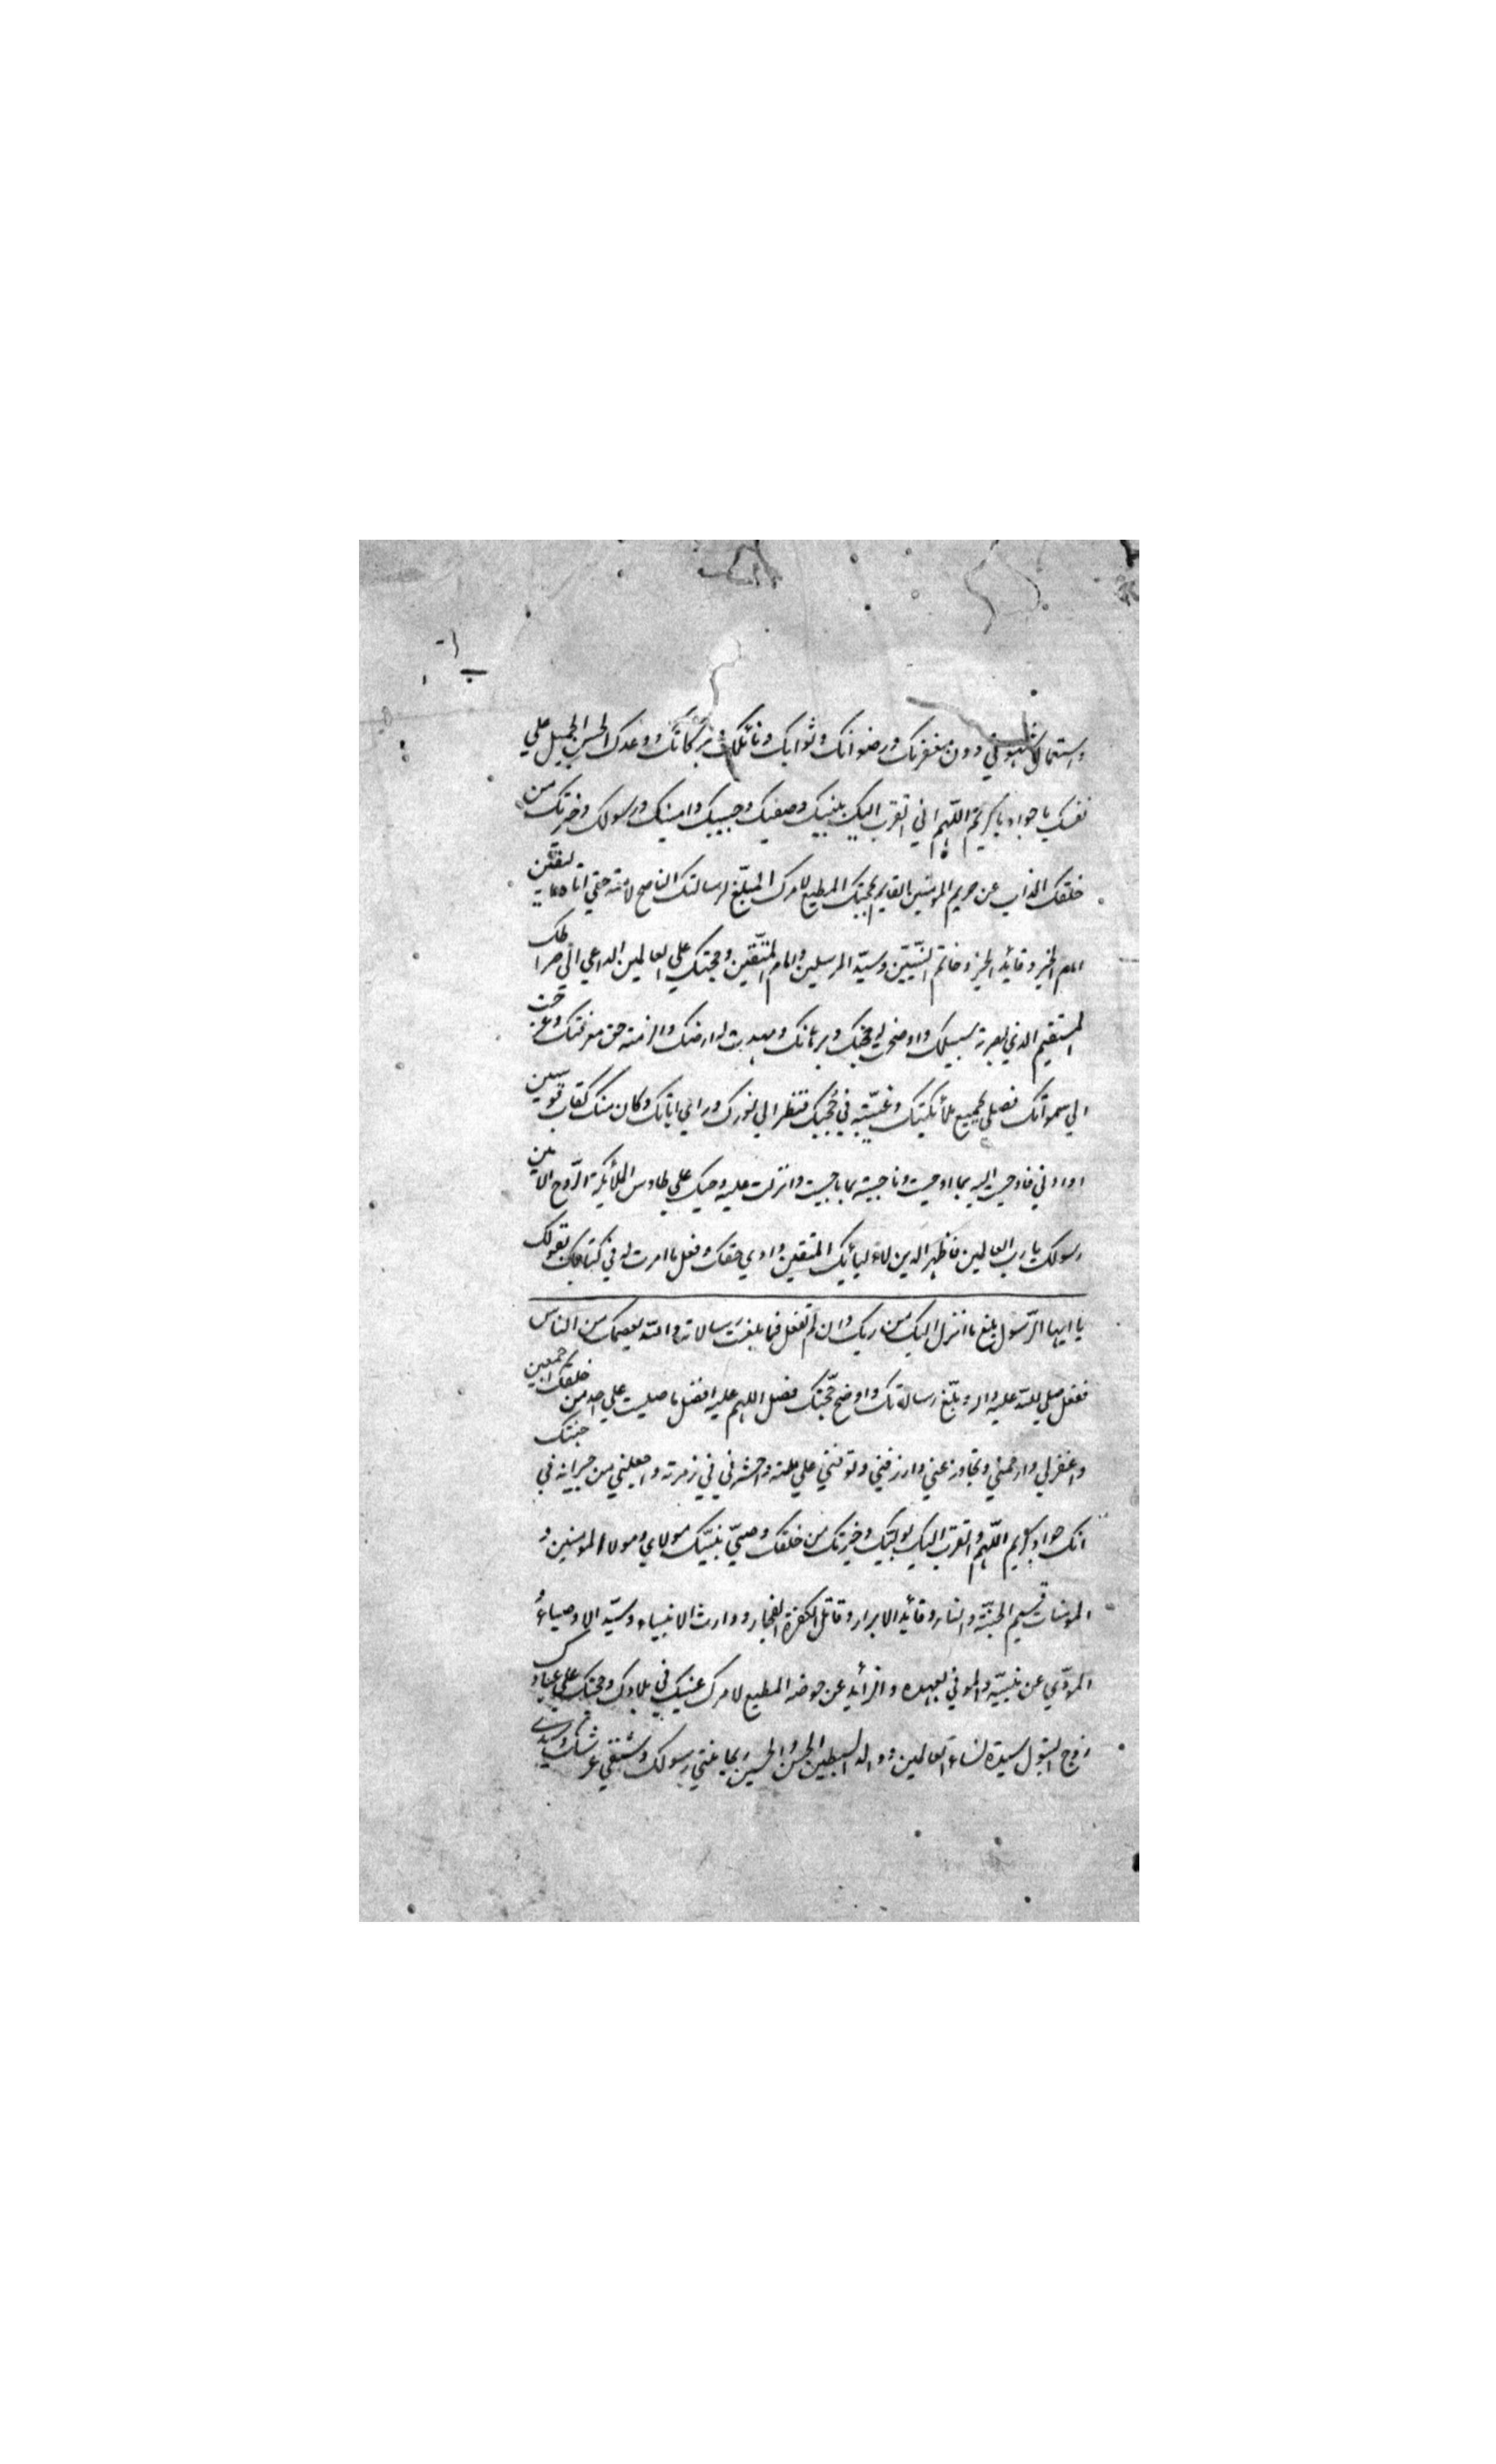 واستعمال شهوتي دون مغفرتك ورضوانك وثوابك ونائلك وبركاتك ووعدك الحسن الجميل علي
نفسك يا جواد يا كريم اللهم اني اتقرب اليك بنبيك وصفيك وحبيبك وامينك ورسولك وخيرتك من
خلقك الذاب عن حريم المومنين القايم بحجتك المطيع لامرك المبلّغ لرسالتك الناصح لامته حتي اتاه اليقين
امام الخير وقائد الخير وخاتم النبيّين وسيّد المرسلين وامام المتّقين وحجتك علي العالمين الداعي الي صراطك
المستقيم الذي بصرته سبيلك واوضحت له حجتك وبرهانك ومهدت له ارضك والزمته حق معرفتك وعرجت
الي سمواتك فصلي بجميع ملائكتك وغيّبته في حُجبك فنظر الي نورك وراي اياتك وكان منك كقاب قوسين
او ادني فاوحيت اليه بما اوحيت وناجيته بما ناجيت وانزلت عليه وحيك علي طاوس الملائكة الرّوح الامين
رسولك يا رب العالمين فاظهر الدين لاوليائك المتقين وادي حقك وفعل ما امرت له في كتابك بقولك
يا ايها الرّسول بلغ ما انزل اليك من ربك وان لم تفعل فما بلغت رسالاته والله يعصمك من الناس
ففعل صلي الله عليه واله وبلّغ رسالاتك واوضح حجّتك فصل اللهم عليه افضل ما صليت علي احد من خلقك اجمعين
واغفر لي وارحمني وتجاوز عني وارزقني وتوفني علي ملته واحشرني في زمرته واجعلني من جيرانه في جنتك
انك جواد كريم اللّهم واتقرب اليك بوليّك وخيرتك من خلقك وصيّ نبيّك مولاي ومولا المومنين و
المومنات قسيم الجنّة والنار وقائد الابرار وقاتل الكفرة الفجار ووارث الانبياء وسيّد الاوصياء و
المودّي عن نبيّه والموفي بعهده والزائد عن حوضه المطيع لامرك عينك في بلادك وحجتك علي عبادك
زوج البتول سيدة نساء العالمين ووالد السبطين الحسن والحسين ريحانتي رسولك وشنفي عرشك وسيدي